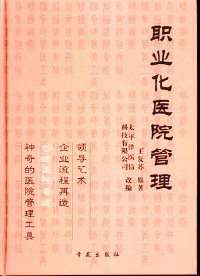 职业化医院管理
原著
太平洋医信
科技有限公司
改编
领导艺术
企业流程再造
神奇的医院管理工具
学苑出版社